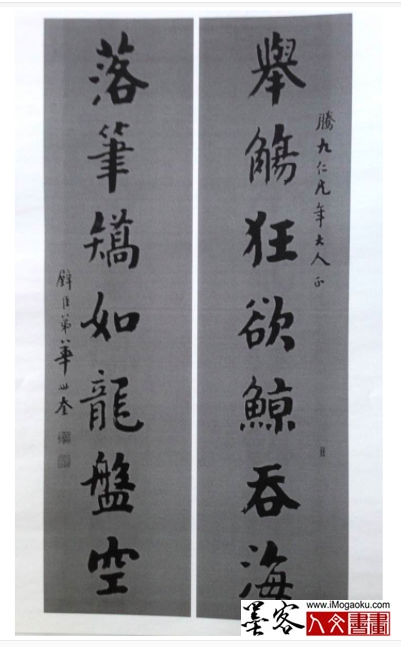 騰九仁兄年大人正
舉觴狂欲鯨吞海
落筆矯如龍盤空
璧臣弟華世奎
墨客
www.iMogaoku.com
人文書畫